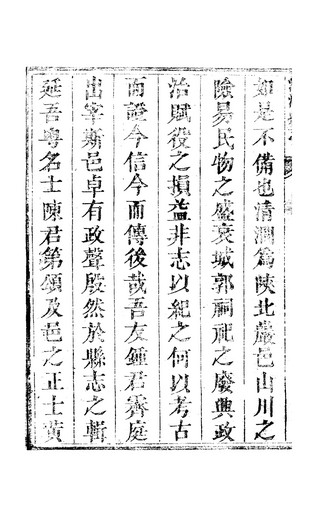 如是不備也清澗爲陝北嚴邑山川之
險易民物之盛衰城郭祠祀之廢興政
治賦役之損益非志以紀之何以考古
而證今信今而傳後哉吾友鍾君霽庭
出宰斯邑卓有政聲殷然於縣志之輯
延吾粤名士陳君第頌及邑之正士黄